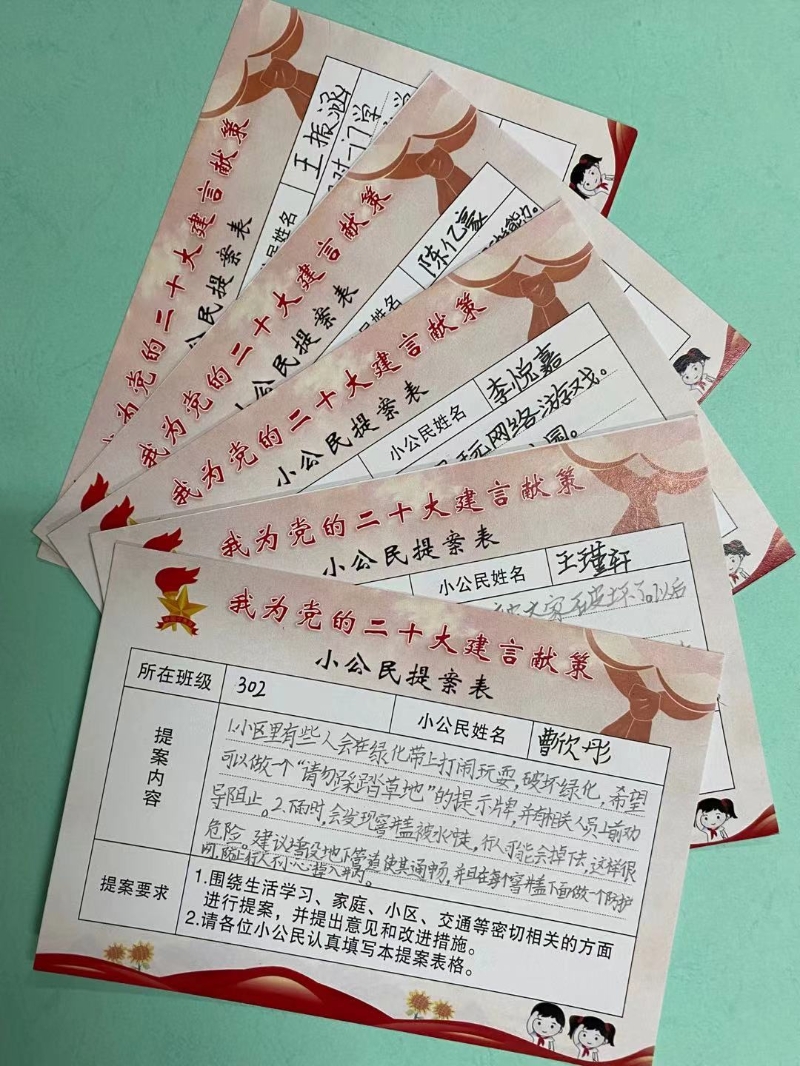 我为党的二十大建言献策
小公民提案表
小公民姓名
王振涵
我为党的二十大建言献策
小公民提案表
小公民姓名
陈亿豪
能力。
我为党的二十大建言献策
小公民提案表
小公民姓名
李悦嘉
玩网络游戏。
园。
我为党的二十大建言献策
小公民提案表
小公民姓名
王瑾轩
以后
我为党的二十大建言献策
小公民提案表
所在班级
302
小公民姓名
曹欣彤
提案内容
1.小区里有些人会在绿化带上打闹玩耍,破坏绿化,希望
可以做一个“请勿踩踏草地”的提示牌,并有相关人员上前劝
导阻止。2.下雨时,会发现窨井盖被水冲,行人可能会掉下去,这样很
危险。建议增设地下管道使其通畅,并且在每个窨井盖下面做一个防护
网,防止行人不小心掉入井内。
提案要求
1.围绕生活学习、家庭、小区、交通等密切相关的方面
进行提案,并提出意见和改进措施。
2.请各位小公民认真填写本提案表格。